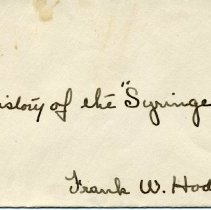 istory of the "Syringe
Frank W. Hod